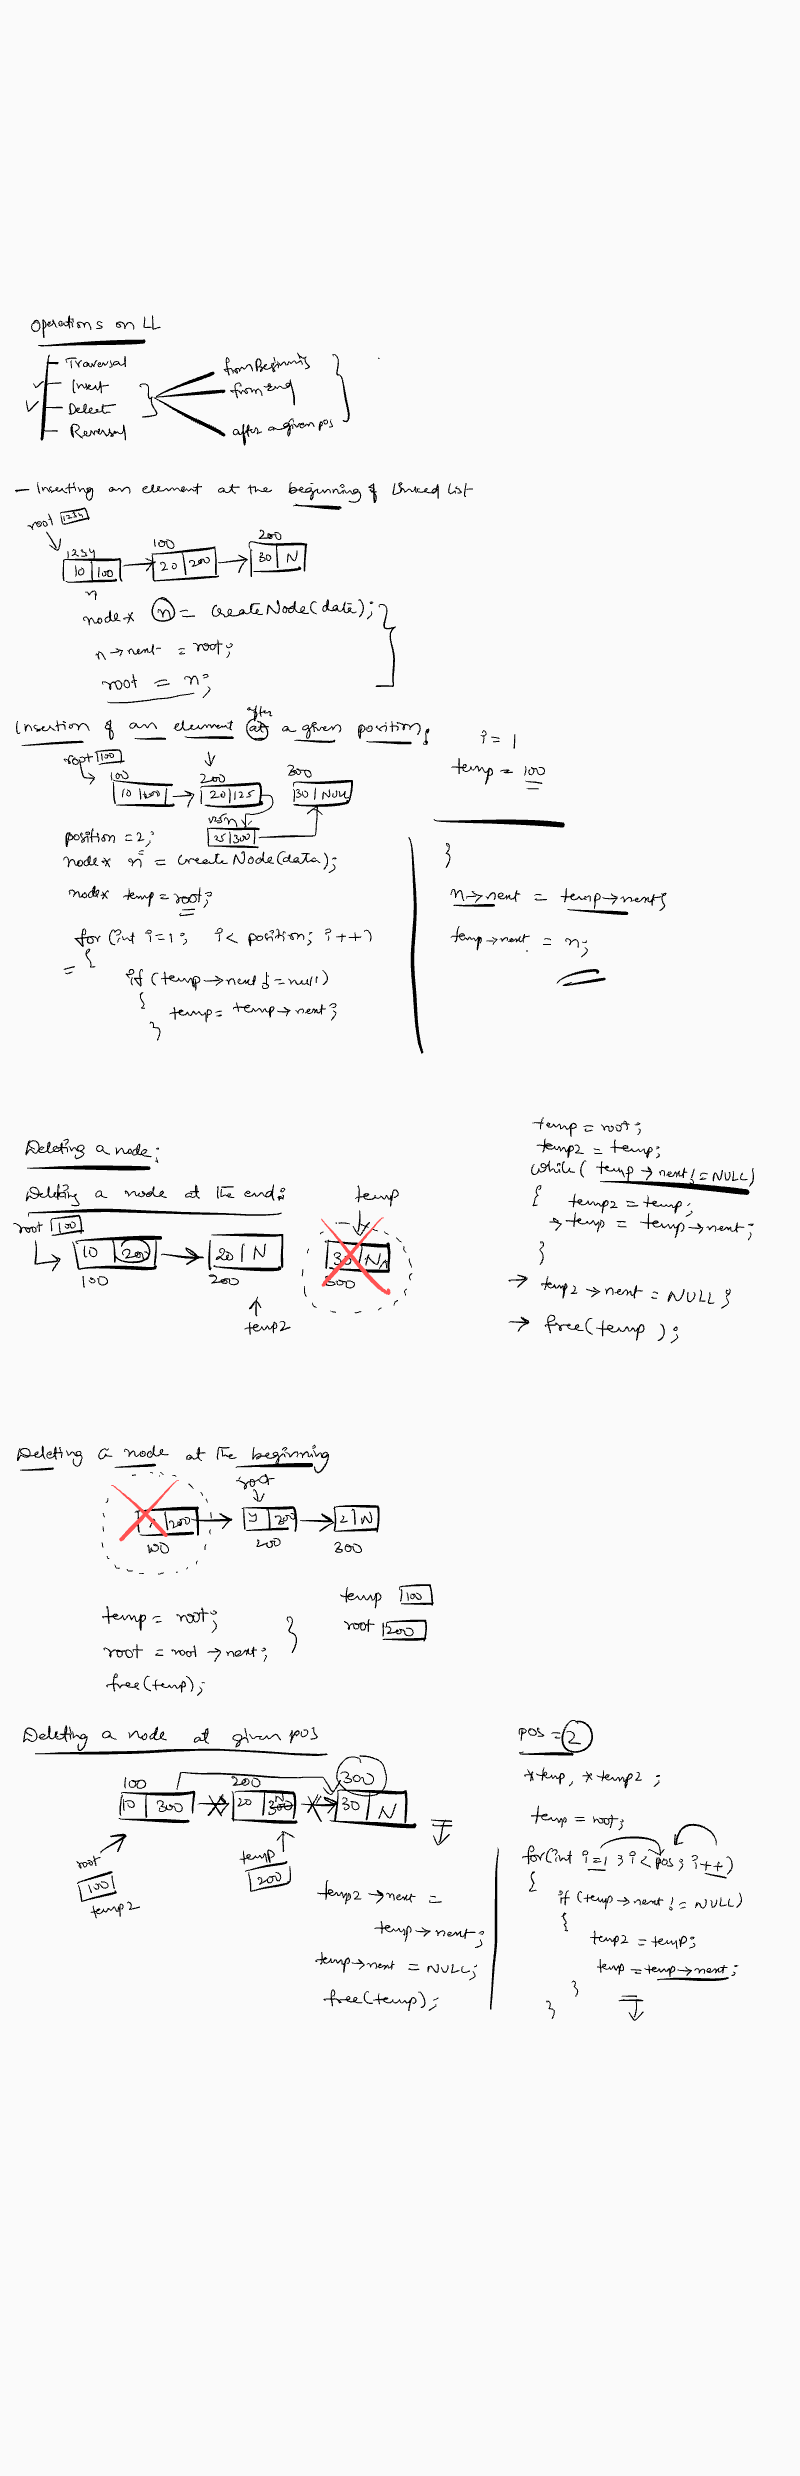 Operations on LL
Traversal
Insert
Delect
Reversal
from Beginning
from End
after a given pos
- Inserting an element at the beginning of Linked List
root 1234
1234 100 200
10 100 20 200 30 N
n
node* n = createNode(data);
n→next = root;
root = n;
after
Insertion of an element at a given position;
root 100
100 200 300
10 20 125 30 NULL
125 n
25 300
position = 2;
node* n = createNode(data);
node* temp = root;
for (int i=1; i < position; i++)
{
if (temp→next != null)
{
temp = temp→next;
}
i = 1
temp = 100
}
n→next = temp→next;
temp→next = n;
Deleting a node:
Deleting a node at the end:
root 100
10 200 20 N 30 N
100 200 300
temp
temp2
temp = root;
temp2 = temp;
while( temp→next != NULL)
{ temp2 = temp;
→ temp = temp→next;
}
→ temp2→next = NULL;
→ free(temp);
Deleting a node at the beginning
root
200 y 300 z N
100 200 300
temp = root;
root = root→next;
free(temp);
temp 100
root 200
Deleting a node at given pos
100 200 300
10 300 20 300 N 30 N
root
100
temp2
temp
200
temp2→next =
temp→next;
temp→next = NULL;
free(temp);
pos = 2
*temp, *temp2;
temp = root;
for(int i=1; i < pos; i++)
{
if (temp→next != NULL)
{
temp2 = temp;
temp = temp→next;
}
}